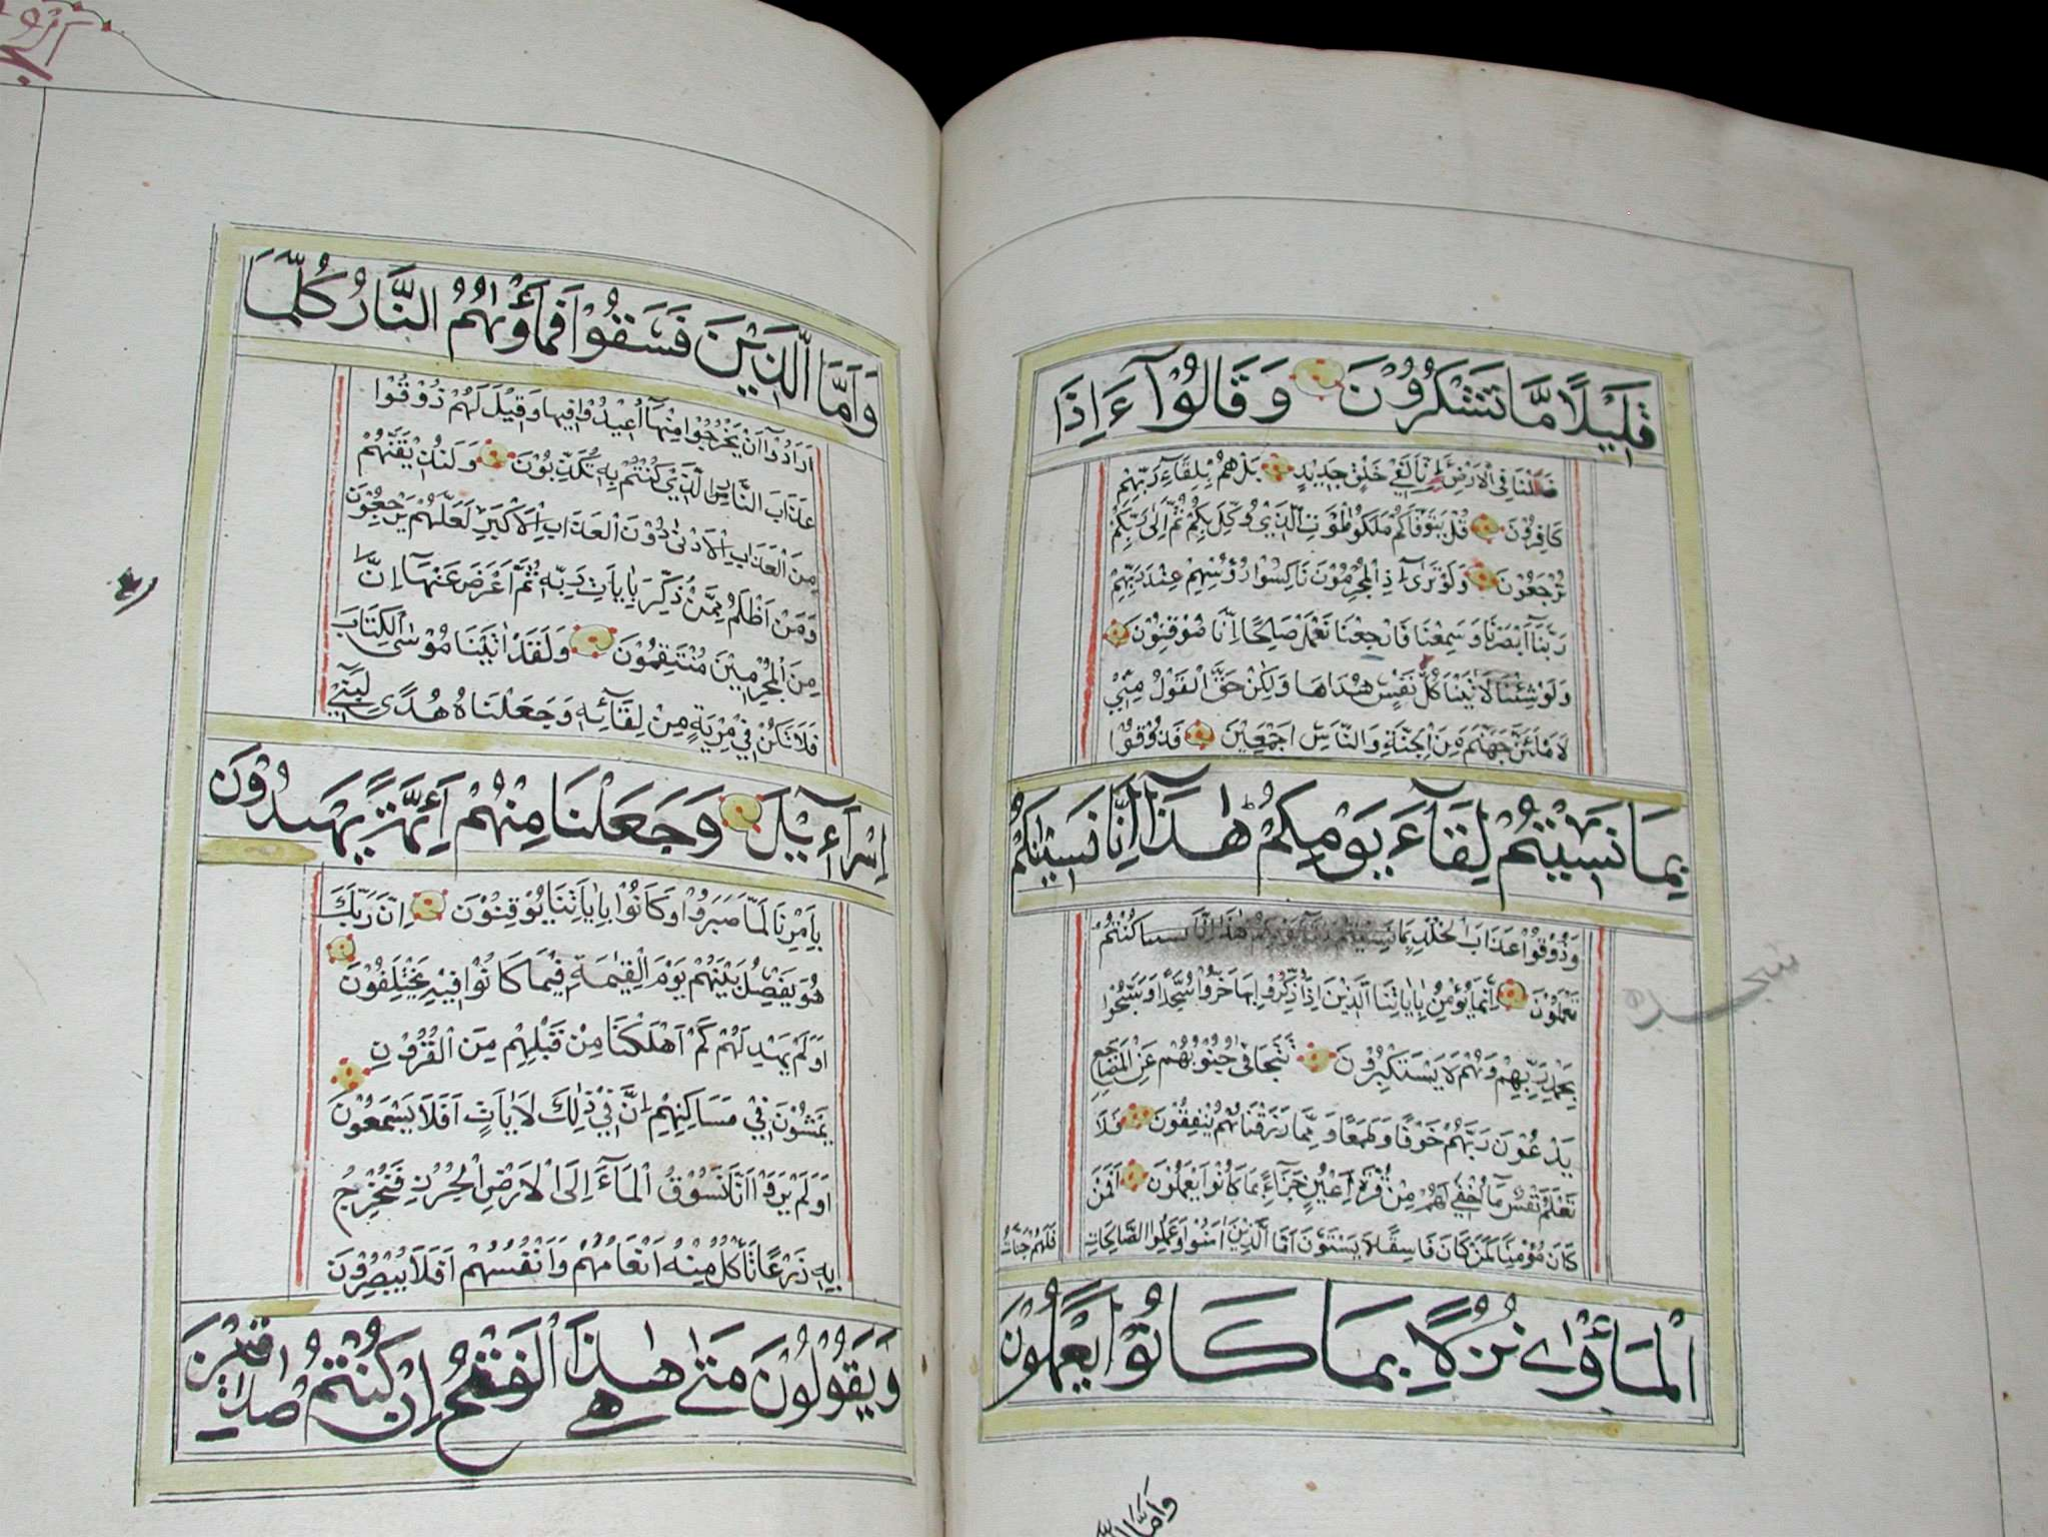 قَلِيْلًا مَّا تَشْكُرُوْنَ وَقَالُوْآ ءَاِذَا
ضَلَلْنَا فِي الْاَرْضِ ءَاِنَّا لَفِيْ خَلْقٍ جَدِيْدٍ بَلْ هُمْ بِلِقَاءِ رَبِّهِمْ
كَافِرُوْنَ قُلْ يَتَوَفَّاكُمْ مَلَكُ الْمَوْتِ الَّذِيْ وُكِّلَ بِكُمْ ثُمَّ اِلٰى رَبِّكُمْ
تُرْجَعُوْنَ وَلَوْ تَرٰىٓ اِذِ الْمُجْرِمُوْنَ نَاكِسُوْا رُؤُسِهِمْ عِنْدَ رَبِّهِمْ
رَبَّنَآ اَبْصَرْنَا وَسَمِعْنَا فَارْجِعْنَا نَعْمَلْ صَالِحًا اِنَّا مُوْقِنُوْنَ
وَلَوْ شِئْنَا لَاٰتَيْنَا كُلَّ نَفْسٍ هُدَاهَا وَلٰكِنْ حَقَّ الْقَوْلُ مِنِّيْ
لَاَمْلَئَنَّ جَهَنَّمَ مِنَ الْجِنَّةِ وَالنَّاسِ اَجْمَعِيْنَ فَذُوْقُوْا
بِمَا نَسِيْتُمْ لِقَآءَ يَوْمِكُمْ هٰذَا اِنَّا نَسِيْنٰكُمْ
وَذُوْقُوْا عَذَابَ الْخُلْدِ بِمَا نَسِيْتُمْ لِقَآءَ يَوْمِكُمْ هٰذَا اِنَّا كُنْتُمْ
تَعْمَلُوْنَ اِنَّمَا يُؤْمِنُ بِاٰيَاتِنَا الَّذِيْنَ اِذَا ذُكِّرُوْا بِهَا خَرُّوْا سُجَّدًا وَسَبَّحُوْا
بِحَمْدِ رَبِّهِمْ وَهُمْ لَا يَسْتَكْبِرُوْنَ تَتَجَافٰى جُنُوْبُهُمْ عَنِ الْمَضَاجِعِ
يَدْعُوْنَ رَبَّهُمْ خَوْفًا وَطَمَعًا وَمِمَّا رَزَقْنَاهُمْ يُنْفِقُوْنَ فَلَا
تَعْلَمُ نَفْسٌ مَآ اُخْفِيَ لَهُمْ مِنْ قُرَّةِ اَعْيُنٍ جَزَآءً بِمَا كَانُوْا يَعْمَلُوْنَ اَفَمَنْ
كَانَ مُؤْمِنًا كَمَنْ كَانَ فَاسِقًا لَا يَسْتَوٗنَ اَمَّا الَّذِيْنَ اٰمَنُوْا وَعَمِلُوا الصَّالِحَاتِ فَلَهُمْ جَنَّاتُ
الْمَأْوٰى نُزُلًا بِمَا كَانُوْا يَعْمَلُوْنَ
سجده
وَاَمَّا
وَاَمَّا الَّذِيْنَ فَسَقُوْا فَمَأْوٰىهُمُ النَّارُ كُلَّمَا
اَرَادُوْآ اَنْ يَخْرُجُوْا مِنْهَآ اُعِيْدُوْا فِيْهَا وَقِيْلَ لَهُمْ ذُوْقُوْا
عَذَابَ النَّارِ الَّذِيْ كُنْتُمْ بِهٖ تُكَذِّبُوْنَ وَلَنُذِيْقَنَّهُمْ
مِنَ الْعَذَابِ الْاَدْنٰى دُوْنَ الْعَذَابِ الْاَكْبَرِ لَعَلَّهُمْ يَرْجِعُوْنَ
وَمَنْ اَظْلَمُ مِمَّنْ ذُكِّرَ بِاٰيَاتِ رَبِّهٖ ثُمَّ اَعْرَضَ عَنْهَا اِنَّا
مِنَ الْمُجْرِمِيْنَ مُنْتَقِمُوْنَ وَلَقَدْ اٰتَيْنَا مُوْسَى الْكِتَابَ
فَلَا تَكُنْ فِيْ مِرْيَةٍ مِنْ لِقَآئِهٖ وَجَعَلْنَاهُ هُدًى لِبَنِيْٓ
اِسْرَآءِيْلَ وَجَعَلْنَا مِنْهُمْ اَئِمَّةً يَهْدُوْنَ
بِاَمْرِنَا لَمَّا صَبَرُوْا وَكَانُوْا بِاٰيَاتِنَا يُوْقِنُوْنَ اِنَّ رَبَّكَ
هُوَ يَفْصِلُ بَيْنَهُمْ يَوْمَ الْقِيٰمَةِ فِيْمَا كَانُوْا فِيْهِ يَخْتَلِفُوْنَ
اَوَلَمْ يَهْدِ لَهُمْ كَمْ اَهْلَكْنَا مِنْ قَبْلِهِمْ مِنَ الْقُرُوْنِ
يَمْشُوْنَ فِيْ مَسَاكِنِهِمْ اِنَّ فِيْ ذٰلِكَ لَاٰيَاتٍ اَفَلَا يَسْمَعُوْنَ
اَوَلَمْ يَرَوْا اَنَّا نَسُوْقُ الْمَآءَ اِلَى الْاَرْضِ الْجُرُزِ فَنُخْرِجُ
بِهٖ زَرْعًا تَأْكُلُ مِنْهُ اَنْعَامُهُمْ وَاَنْفُسُهُمْ اَفَلَا يُبْصِرُوْنَ
وَيَقُوْلُوْنَ مَتٰى هٰذَا الْفَتْحُ اِنْ كُنْتُمْ صٰدِقِيْنَ